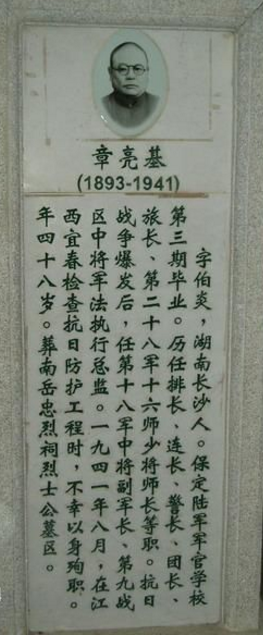 章亮基
(1893-1941)
字伯炎，湖南长沙人。保定陆军军官学校
第三期毕业。历任排长、连长、营长、团长、
旅长、第二十八军十六师少将师长等职。抗日
战争爆发后，任第十八军中将副军长、第九战
区中将军法执行总监。一九四一年八月，在江
西宜春检查抗日防护工程时，不幸以身殉职。
年四十八岁。葬南岳忠烈祠烈士公墓区。